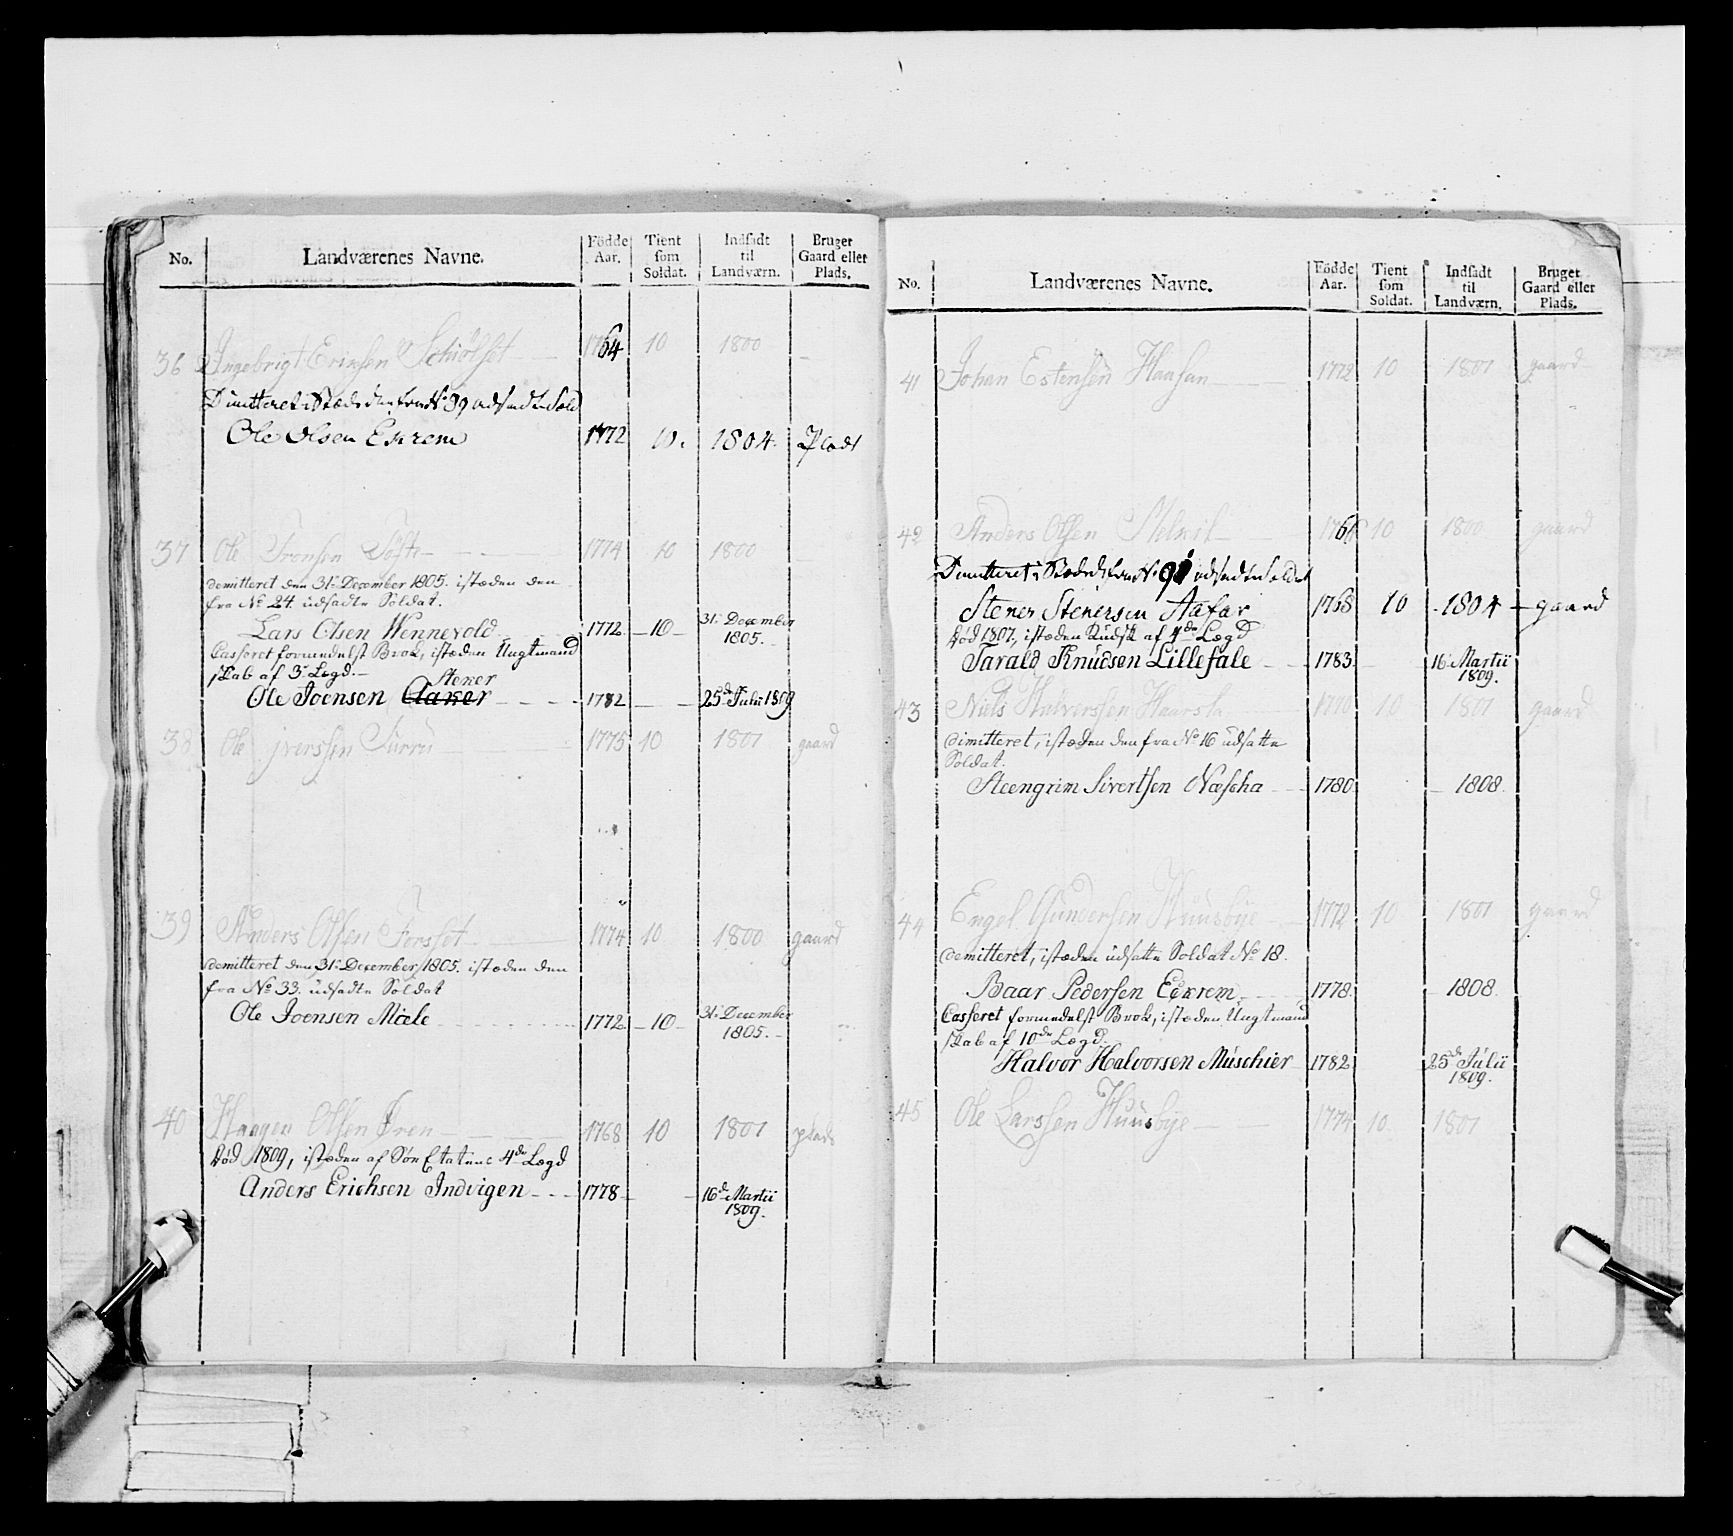 No. Landværenes Navne. Födde Aar. Tient som Soldat. Indsadt til Landværn. Bruger Gaard eller Plads.
36 Ingebrigt Erichsen Schiölset 1764 10 1800
Dimitteret i Stæden den fra No 39 udsadte Sold
Ole Olsen Eckrem 1772 10. 1804. Plads
37 Ole Tronsen 1774 10 1800
demitteret den 31. December 1805. istæden den
fra No 24. udsadte Soldat.
Lars Olsen Wennevold 1772 10 31. December
1805.
Casseret formedelst Brok, istæden Ungtmand
skab af 3. Legd.
Ole Joensen Aaker Steker 1782 25de Julii 1809
38 Ole Iverssen Furru 1775 10 1801 gaard
39 Anders Olsen Forsset 1774 10 1800 gaard
demitteret den 31. December 1805. istæden den
fra No 33. udsadte Soldat
Ole Joensen Mæle 1772 10 31. December
1805.
40 Haagen Olsen Øren 1768 10 1801 plads
død 1809, istæden af Søe Etatens 4de Lægd
Anders Erichsen Indvigen 1778 16de Martii
1809.
No. Landværenes Navne. Födde Aar. Tient som Soldat. Indsadt til Landværn. Bruger Gaard eller Plads.
41 Johan Estensen Haasan 1772 10 1801 gaard
42 Anders Olsen 1768 10 1800 gaard
Dimitteret i Stæden den fra No 91 udsadte Soldat
Stener Stenersen Aafar 1768 10 1804 gaard
død 1807, istæden Rudsk af 4de Lægd
Tarald Knudsen Lillefale 1783 16. Martii
1809.
43 Niels Halverssen Haarsta 1770 10 1801 gaard
dimitteret, istæden den fra No 16 udsatte
Soldat.
Steengrim Sivertsen Næscha 1780 1808
44 Engel Gundersen Huusbye 1772 10 1801 gaard
demitteret, istæden udsatte Soldat No 18.
Baar Pedersen Eckrem 1778 1808
Casseret formedelst Brok, istæden Ungtmand
skab af 10de Lægd.
Halvor Halvorsen Muschier 1782 25de Julii
1809.
45 Ole Larssen Huusbye 1774 10 1801